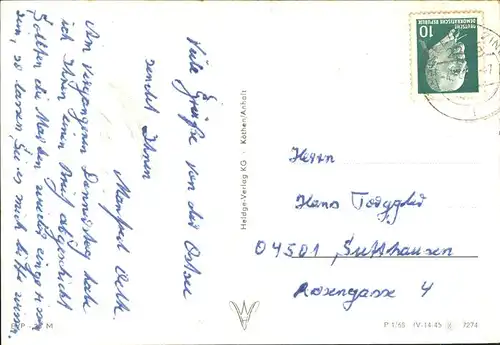 Viele Grüße von der Ostsee
sendet Ihnen
Manfred
Am vergangenen Dienstag habe
ich Ihnen einen Brief abgeschickt
Sollten die Marken wieder
sein, so lassen Sie es mich bitte wissen.
Heldge-Verlag KG · Köthen/Anhalt
10
DEUTSCHE
DEMOKRATISCHE REPUBLIK
Herrn
Hans
04501
Rosengasse 4
M
P 1/65 IV-14-45 7274